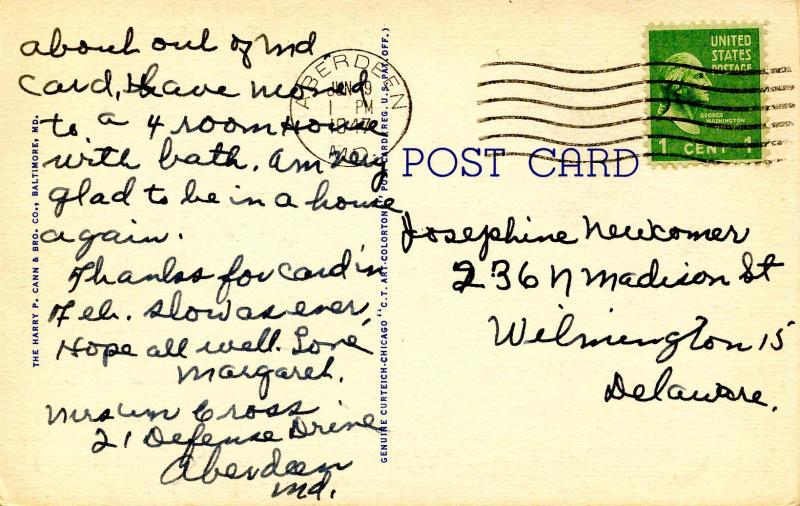 about out of Md
card, Have moved
to a 4 room House
with bath. am very
glad to be in a house
again.
Thanks for card in
Feb. slow as ever,
Hope all well. Love
Margaret.
Mrs Wm Cross
21 Defense Drive
Aberdeen
Md.
THE HARRY P. CANN & BRO. CO., BALTIMORE, MD.
GENUINE CURTEICH-CHICAGO "C.T. ART-COLORTONE" POST CARD (REG. U.S. PAT. OFF.)
ABERDEEN
9
1 PM
1947
MD.
UNITED
STATES
POSTAGE
GEORGE
WASHINGTON
1 CENT 1
POST CARD
Josephine Newcomer
236 N Madison St
Wilmington 15
Delaware.